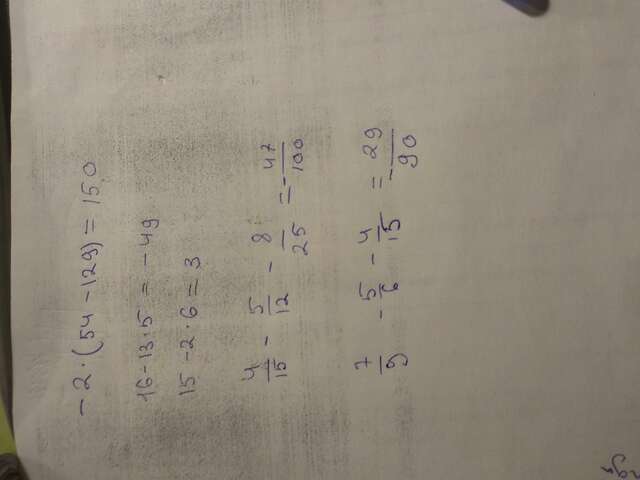 -2·(54-129)=150
16-13·5=-49
15-2·6=3
4/15 - 5/12 - 8/25 = -47/100
7/9 - 5/6 - 4/15 = -29/90